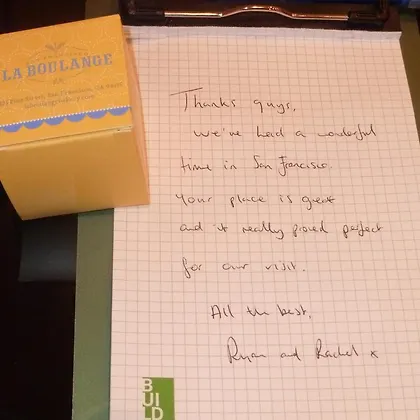 LA BOULANGE
Thanks guys,
we've had a wonderful
time in San Francisco.
Your place is great
and it really proved perfect
for our visit.
All the best,
Ryan and Rachel x
BUILD